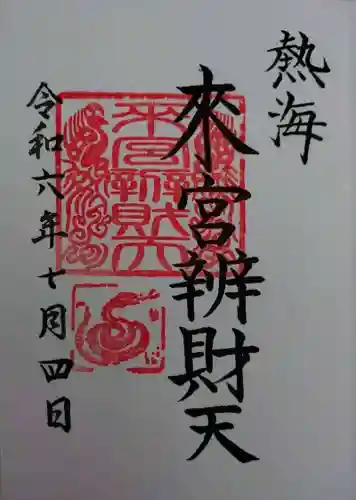 熱海
來宮辨財天
令和六年七月四日
來宮辨財天